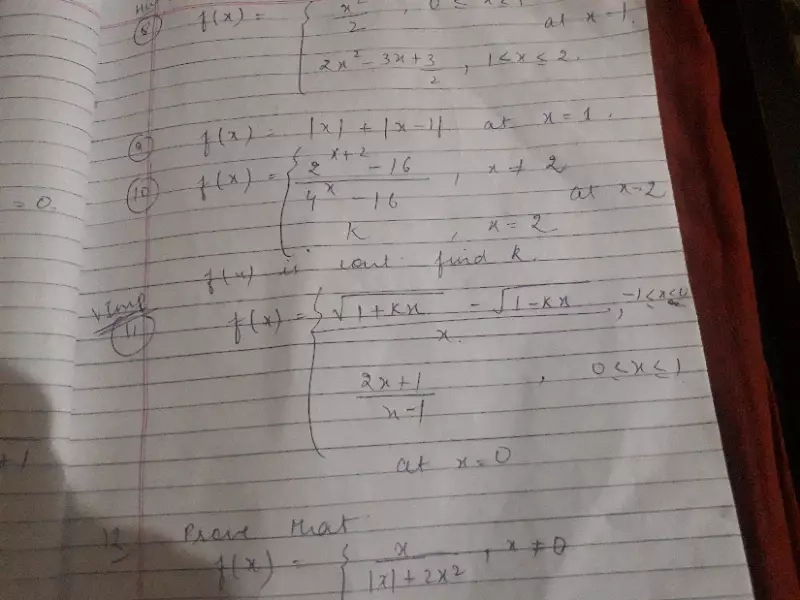 ⑧ f(x) = { x²/2 , 0 ≤ x ≤ 1 at x - 1.
2x² - 3x + 3/2 , 1 < x ≤ 2.
⑨ f(x) = |x| + |x-1| at x = 1.
⑩ f(x) = { (2^(x+2) - 16)/(4^x - 16) , x ≠ 2 at x-2
= 0.
k , x = 2
f(x) is cont. find k.
V Imp
⑪ f(x) = { (√(1+kx) - √(1-kx))/x. , -1 ≤ x ≤ 0
(2x+1)/(x-1) , 0 ≤ x ≤ 1
at x = 0
+ 1
12 Prove that
f(x) = { x/(|x| + 2x²) , x ≠ 0